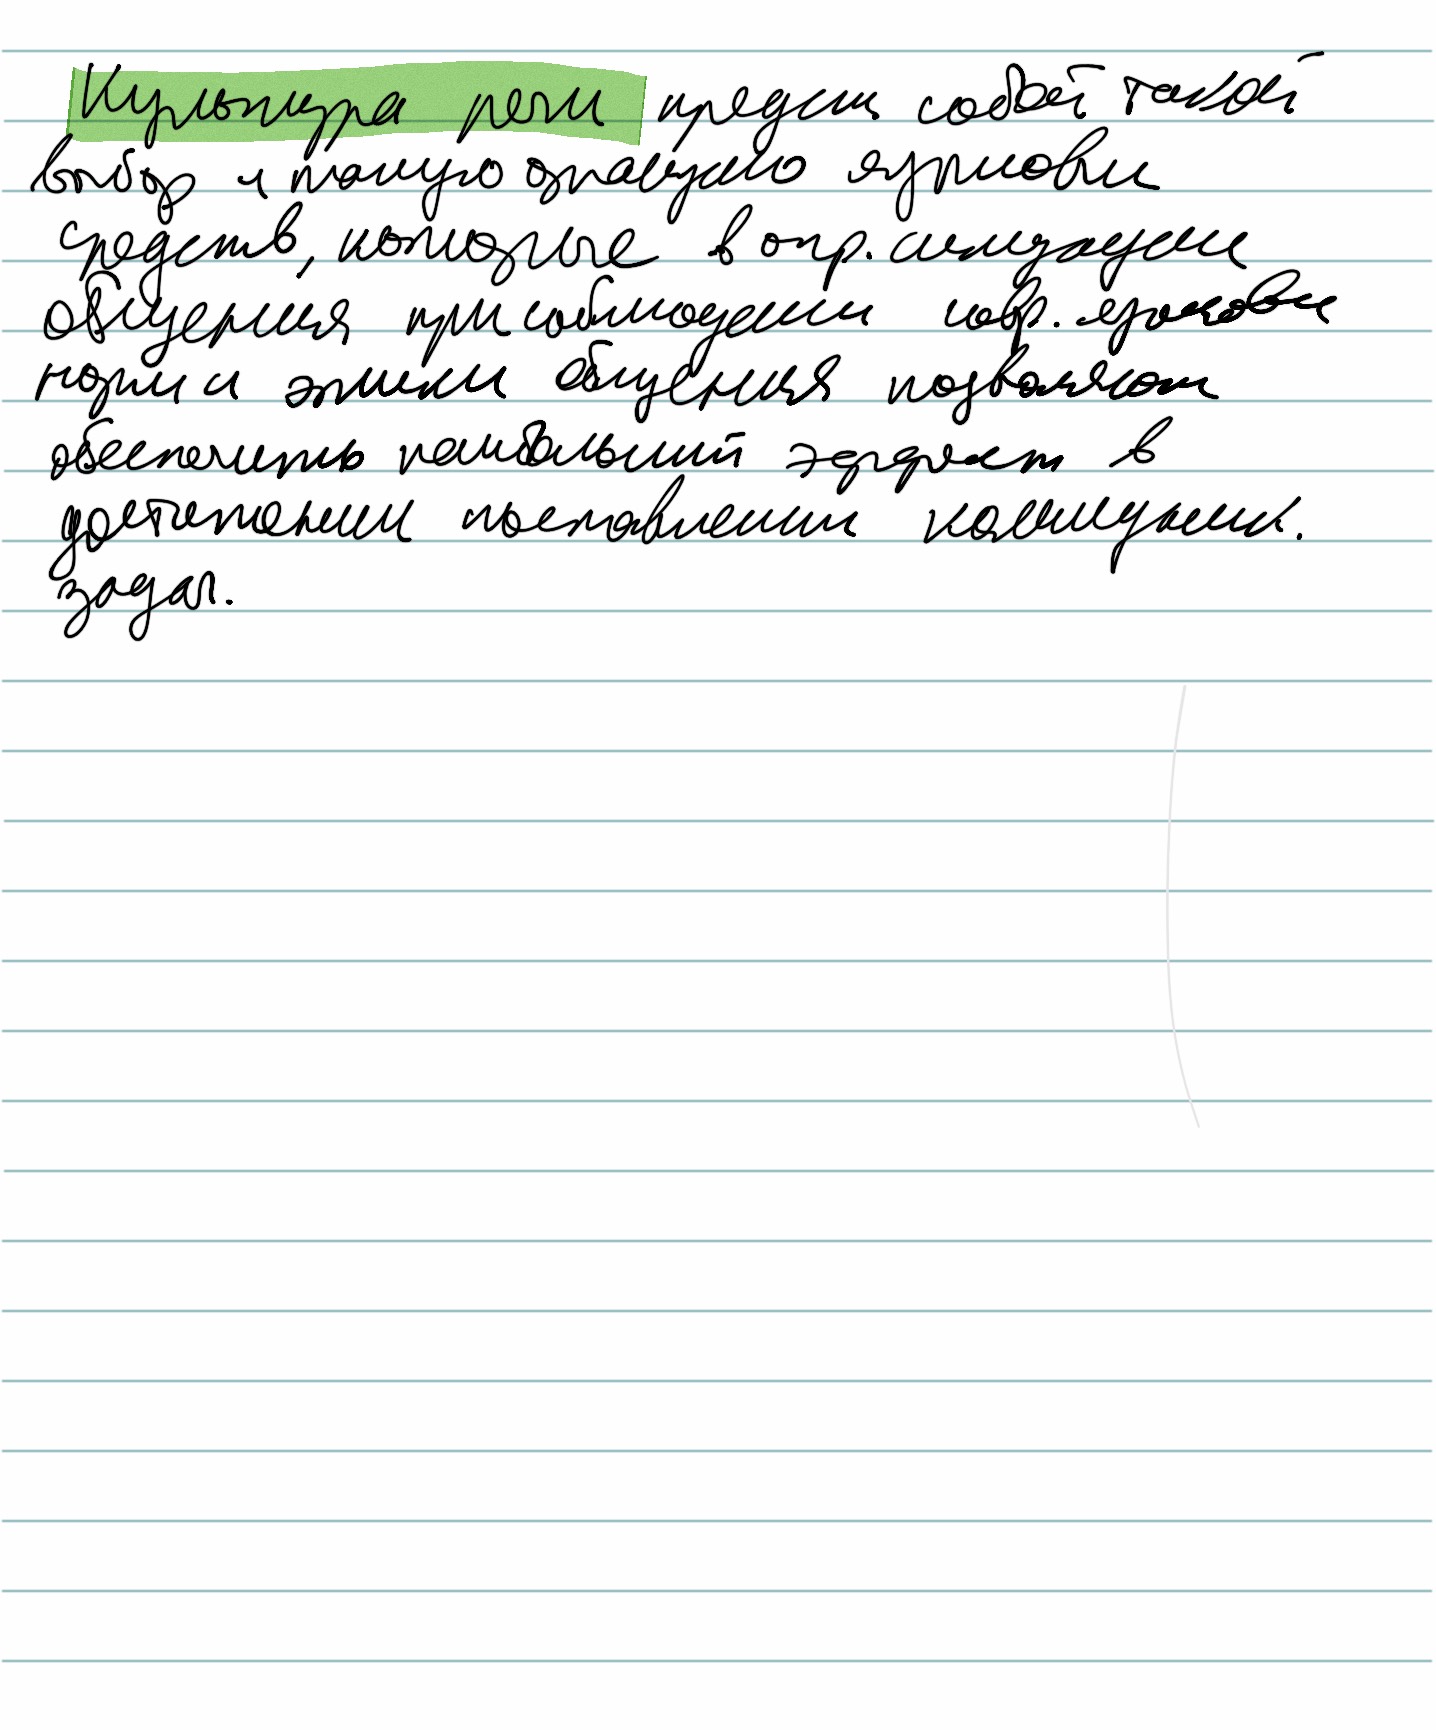 Культура речи предст собой такой
выбор и такую организацию языковых
средств, которые в опр. ситуации
общения при соблюдении совр. языковых
норм и этики общения позволяют
обеспечить наибольший эффект в
достижении поставленных коммуник.
задач.